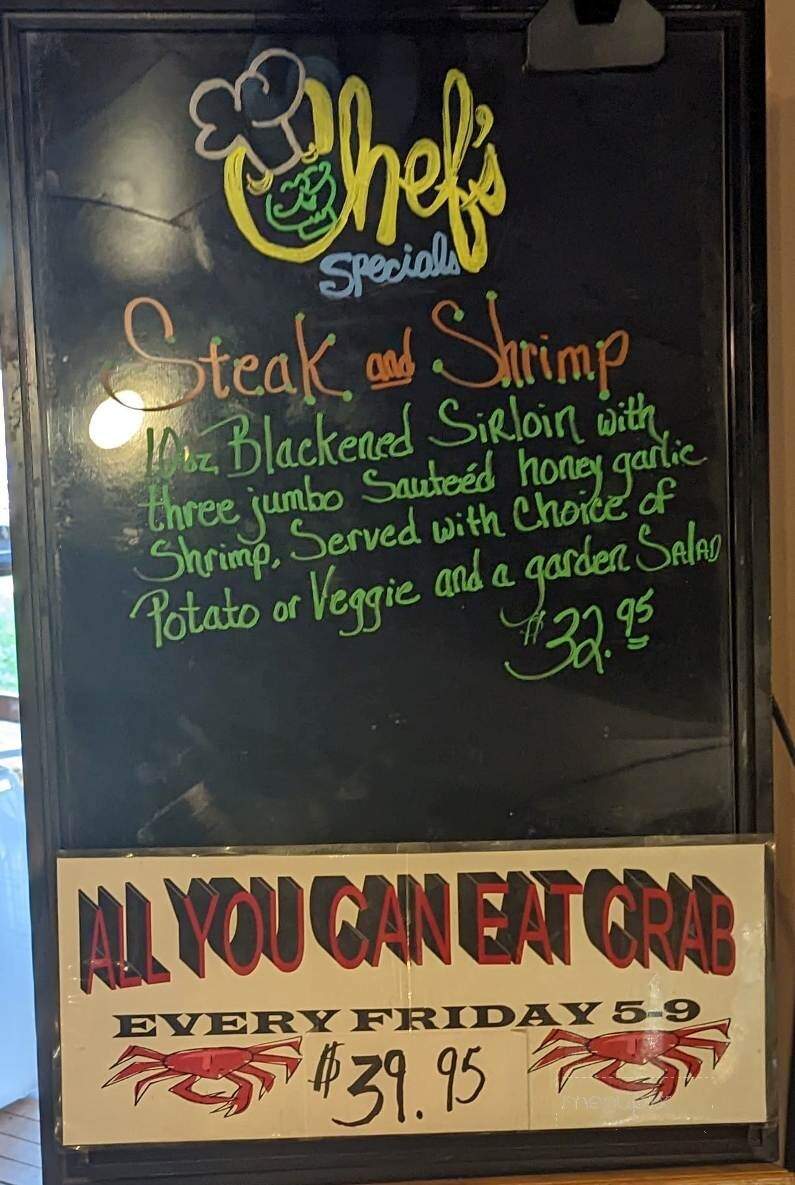 Chef's
Specials
Steak and Shrimp
10oz Blackened Sirloin with
three jumbo Sauteéd honey garlic
Shrimp. Served with Choice of
Potato or Veggie and a garden Salad
$32.95
ALL YOU CAN EAT CRAB
EVERY FRIDAY 5-9
$39.95